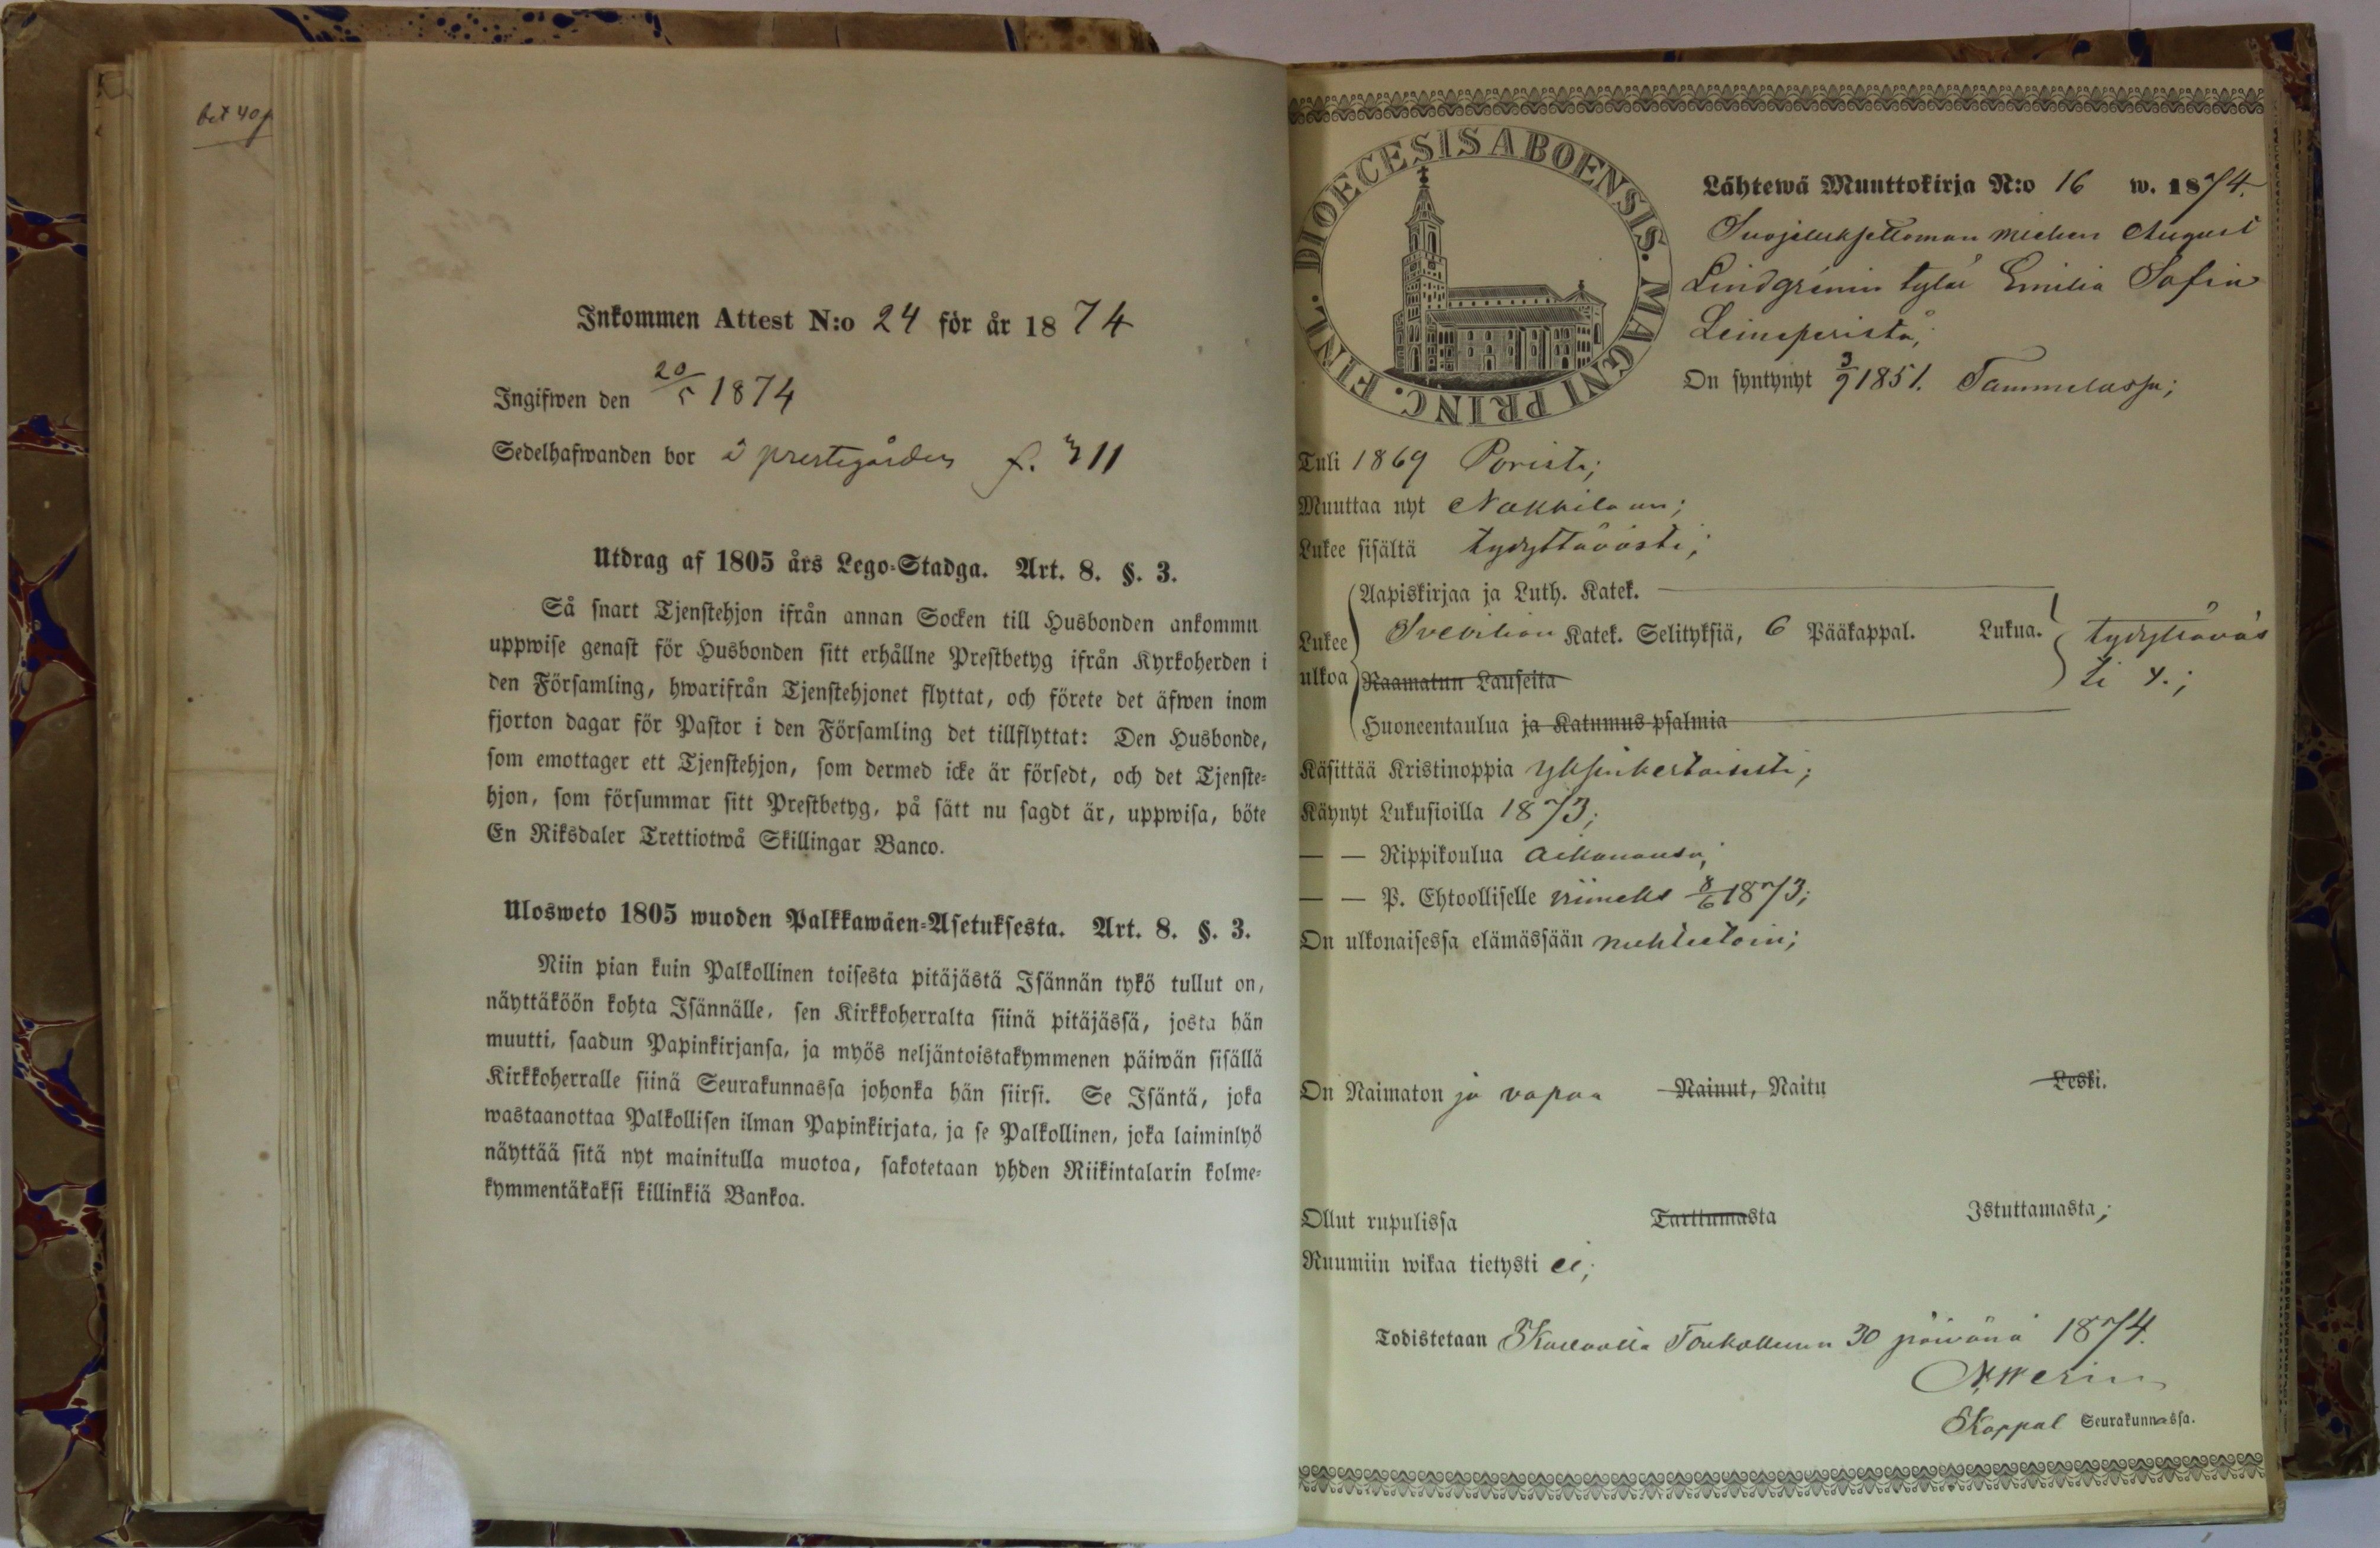 bet 40 p
Inkommen Attest N:o 24 för år 1874
Ingifwen den 20/5 1874
Sedelhafwanden bor å prestegården f. 311
Utdrag af 1805 års Lego-Stadga. Art. 8. §. 3.
Så snart Tjenstehjon ifrån annan Socken till Husbonden ankommit
uppwise genast för Husbonden sitt erhållne Prestbetyg ifrån Kyrkoherden i
den Församling, hwarifrån Tjenstehjonet flyttat, och förete det äfwen inom
fjorton dagar för Pastor i den Församling det tillflyttat: Den Husbonde,
som emottager ett Tjenstehjon, som dermed icke är försedt, och det Tjenste-
hjon, som försummar sitt Prestbetyg, på sätt nu sagdt är, uppwisa, böte
En Riksdaler Trettiotwå Skillingar Banco.
Ulosweto 1805 wuoden Palkkawäen-Asetuksesta. Art. 8. §. 3.
Niin pian kuin Palkollinen toisesta pitäjästä Isännän tykö tullut on,
näyttäköön kohta Isännälle, sen Kirkkoherralta siinä pitäjässä, josta hän
muutti, saadun Papinkirjansa, ja myös neljäntoistakymmenen päiwän sisällä
Kirkkoherralle siinä Seurakunnassa johonka hän siirsi. Se Isäntä, joka
wastaanottaa Palkollisen ilman Papinkirjata, ja se Palkollinen, joka laiminlyö
näyttää sitä nyt mainitulla muotoa, sakotetaan yhden Riikintalarin kolme-
kymmentäkaksi killinkiä Bankoa.
DIOECESIS ABOENSIS. MAGNI PRINC. FINL.
Lähtewä Muuttokirja N:o 16 w. 1874.
Suojeluksettoman miehen August
Lindgrenin tytär Emilia Sofia
Leineperistä;
On syntynyt 3/9 1851. Tammelassa;
Tuli 1869 Porista;
Muuttaa nyt Nakkilaan;
Lukee sisältä tydyttävästi;
Aapiskirjaa ja Luth. Katek.
Lukee ulkoa Svebilion Katek. Selityksiä, 6 Pääkappal. Lukua. tydyttäväs
Raamatun Lauseita ti y.;
Huoneentaulua ja Katumus-psalmia
Käsittää Kristinoppia yksinkertaisesti;
Käynyt Lukusioilla 1873;
— — Rippikoulua aikanansa;
— — P. Ehtoolliselle viimeks 8/6 1873;
On ulkonaisessa elämässään nuhteetoin;
On Naimaton ja vapaa Nainut, Naitu Leski.
Ollut rupulissa Tarttumasta Istuttamasta;
Ruumiin wikaa tietysti ei;
Todistetaan Kullaalla Toukokuun 30 päivänä 1874.
Kappal Seurakunnassa.